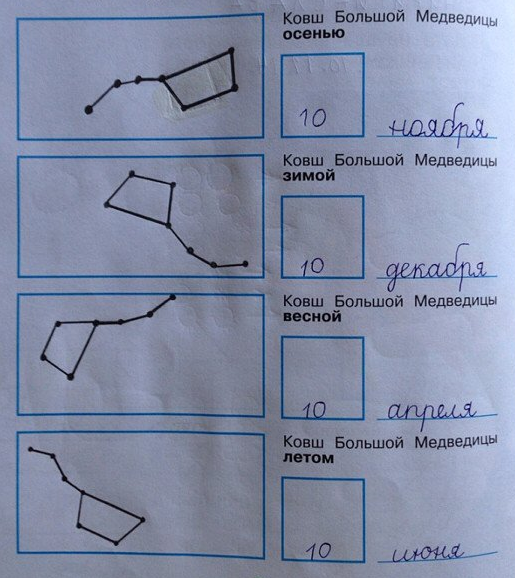 Ковш Большой Медведицы
осенью
10 ноября
Ковш Большой Медведицы
зимой
10 декабря
Ковш Большой Медведицы
весной
10 апреля
Ковш Большой Медведицы
летом
10 июня